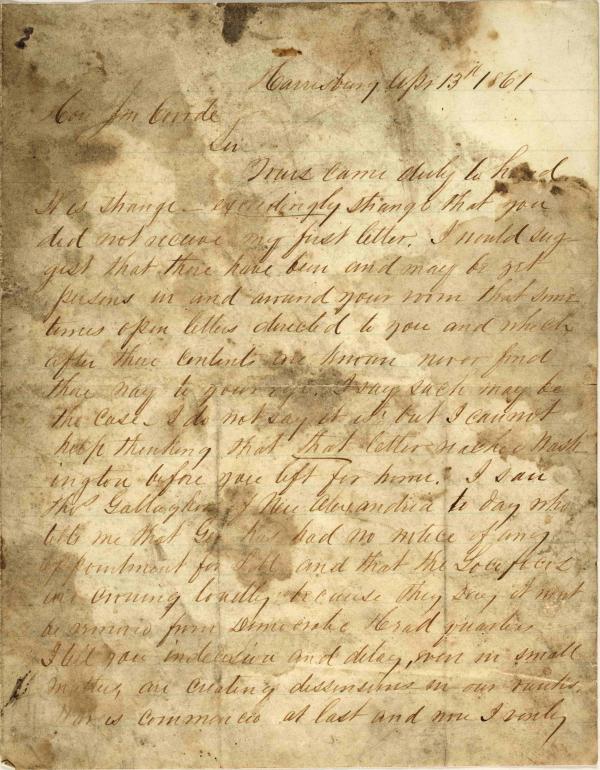 Harrisburg Apr 13th 1861
Hon Jno Covode
Sir
Yours came duly to hand
It is strange - exceedingly strange that you
did not receive my first letter. I would sug-
gest that there have been and may be yet
persons in and around your room that some
times open letters directed to you and which
after there contents are known never find
there way to your eye. I say such may be
the case. I do not say it is but I cannot
keep thinking that that letter reached Wash
ington before you left for home. I saw
Thos Gallagher of New Alexandria to day who
tells me that has had no notice of any
appointment for and that the Locofocos
are crowing loudly because they say it must
be removed from Democratic Head quarters
I tell you indecision and delay, even in small
matters, are creating dissensions in our ranks.
War is commenced at last and now I verily